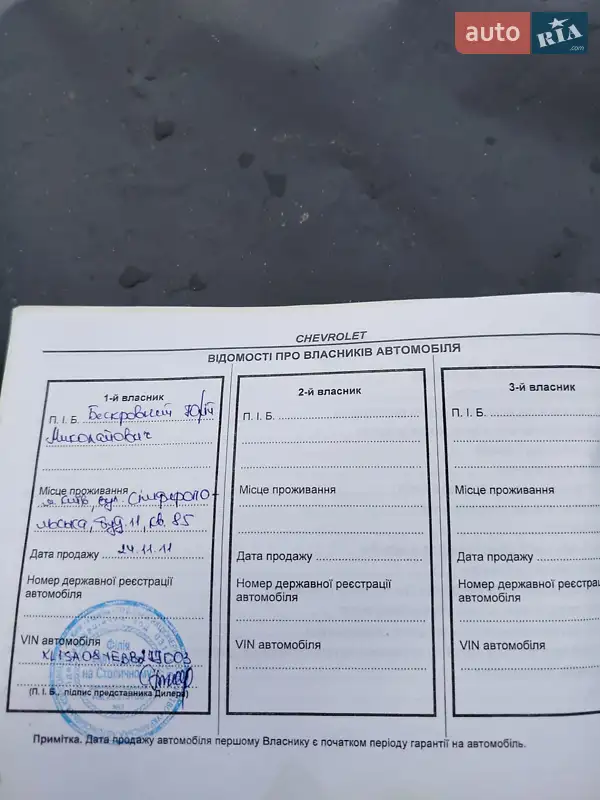 auto RIA.com
CHEVROLET
ВІДОМОСТІ ПРО ВЛАСНИКІВ АВТОМОБІЛЯ
1-й власник
П. І. Б. Бескровний Юрій
Миколайович
Місце проживання
м Київ, вул. Сімферопо-
льська, буд. 11, кв. 85
Дата продажу 24.11.11
Номер державної реєстрації
автомобіля
VIN автомобіля
Філія
на Столичному
(П. І. Б., підпис представника Дилера)
2-й власник
П. І. Б.
Місце проживання
Дата продажу
Номер державної реєстрації
автомобіля
VIN автомобіля
3-й власник
П. І. Б.
Місце проживання
Дата продажу
Номер державної
автомобіля
VIN автомобіля
Примітка. Дата продажу автомобіля першому Власнику є початком періоду гарантії на автомобіль.